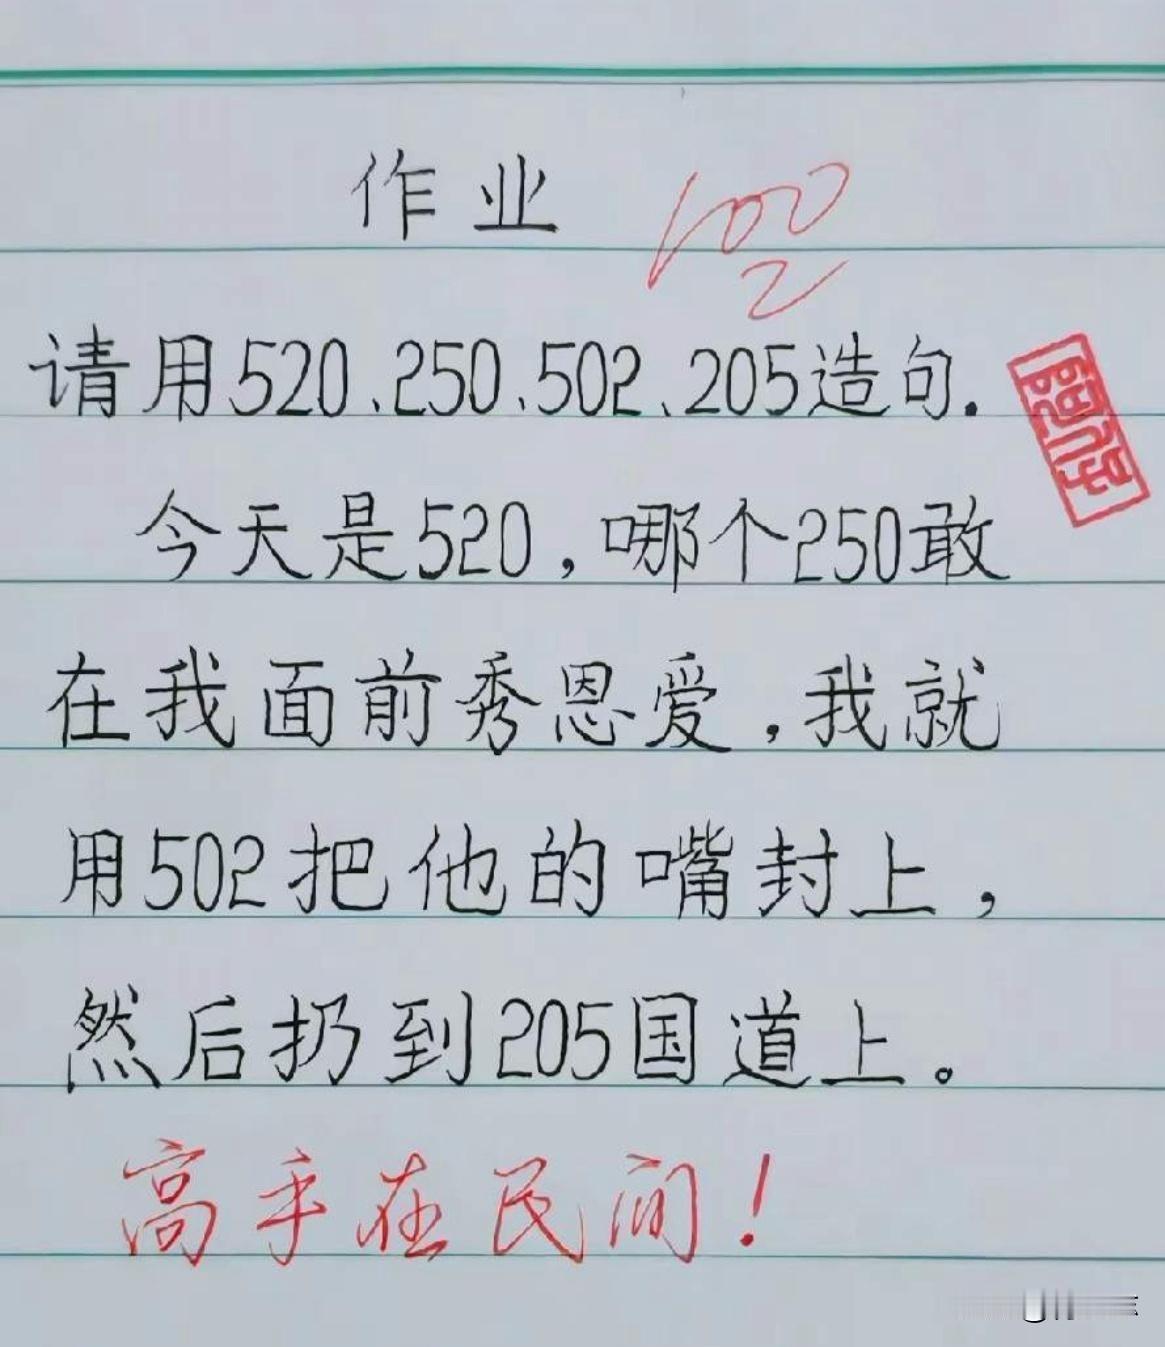 作业
100
2
请用520、250、502、205造句.
今天是520，哪个250敢
在我面前秀恩爱，我就
用502把他的嘴封上，
然后扔到205国道上。
高手在民间！